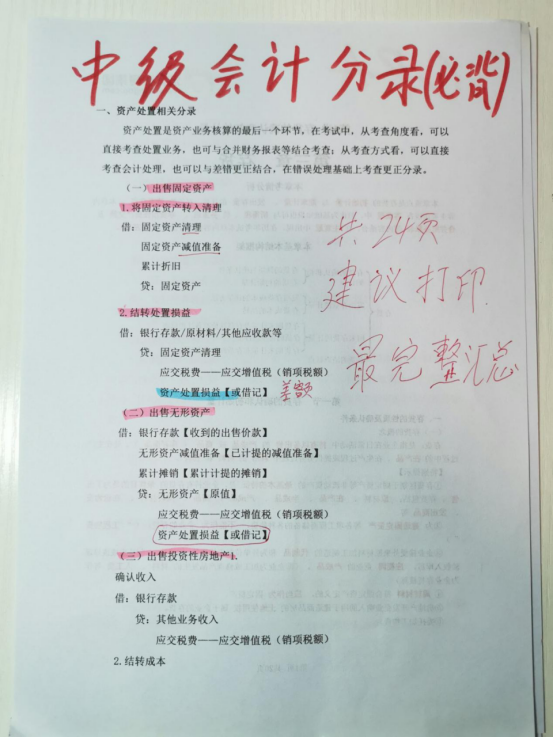 中级会计分录(必背)
一、资产处置相关分录
资产处置是资产业务核算的最后一个环节，在考试中，从考查角度看，可以
直接考查处置业务，也可与合并财务报表等结合考查；从考查方式看，可以直接
考查会计处理，也可以与差错更正结合，在错误处理基础上考查更正分录。
（一）出售固定资产
1.将固定资产转入清理
借：固定资产清理
固定资产减值准备
累计折旧
贷：固定资产
共24页
建议打印
最完整汇总
2.结转处置损益
借：银行存款/原材料/其他应收款等
贷：固定资产清理
应交税费——应交增值税（销项税额）
资产处置损益【或借记】 差额
（二）出售无形资产
借：银行存款【收到的出售价款】
无形资产减值准备【已计提的减值准备】
累计摊销【累计计提的摊销】
贷：无形资产【原值】
应交税费——应交增值税（销项税额）
资产处置损益【或借记】
（三）出售投资性房地产1.
确认收入
借：银行存款
贷：其他业务收入
应交税费——应交增值税（销项税额）
2.结转成本